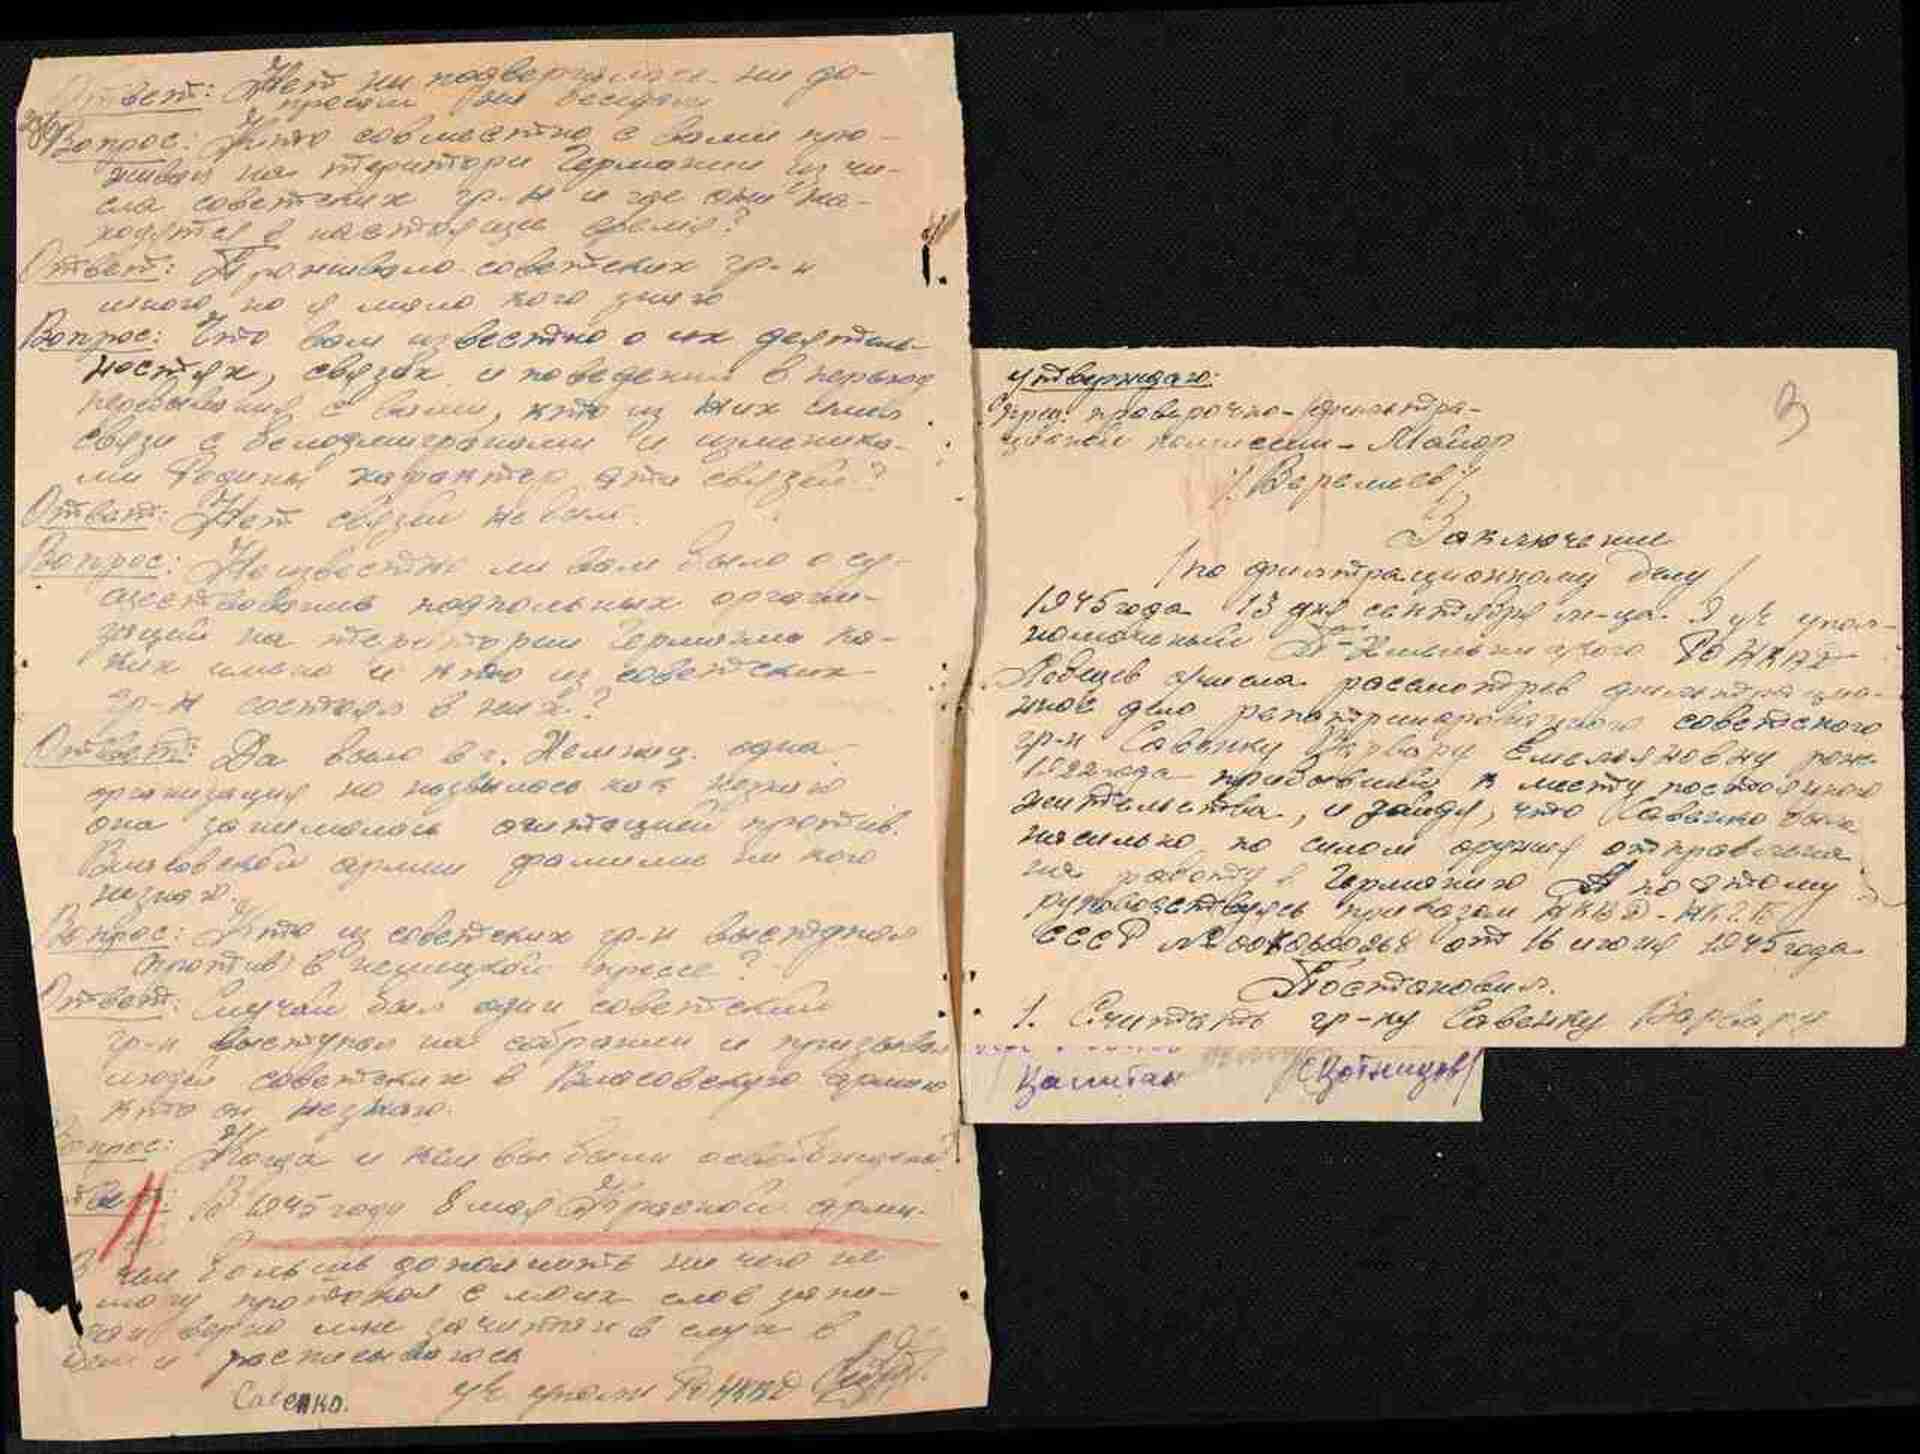 Ответ: Нет ни подвергалась ни до-
просам ни беседам
Вопрос: Кто совместно с вами про-
живал на територи Германии из чи-
сла советских гр-н и где они на-
ходятся в настоящие время?
Ответ: Проживало советских гр-н
много, но я мало кого знаю
Вопрос: Что вам известно о их деятель-
ностях, связах и поведении в период
пребывания с вами, кто из них имел
связи с белоэмигрантами и изменика-
ми Родины характер эти связей?
Ответ: Нет связей не было.
Вопрос: Не известно ли вам было о су-
ществование подпольных органи-
заций на територии Германии ка-
ких имено и кто из советских
гр-н состоял в них?
Ответ: Да было в г. Хемниц. одна
организация но называлась как незнаю
она занималась агитацией против
Власовской армии фамилии ни кого
незнаю.
Вопрос: Кто из советских гр-н выступал
против в немецкой прессе?
Ответ: Случай был один советский
гр-н выступал на собрании и призывал
людей советских в Власовскую армию
кто он незнаю.
Вопрос: Когда и кем вы были освобождены?
Ответ: В 1945 году 8 мая Красной арми.
В чем больше дополнить ни чего не
могу протокол с моих слов запи-
сан верно мне зачитан в слух в
чем и расписываюсь
Савенко.
уч уполн РО НКВД
3
Утверждаю:
Пред. проверочно-фильтра-
ционной комиссии - Майор
/Веремеев/
Заключение
/по фильтрационному делу/
1945 года 13 дня сентября м-ца. Я уч упол-
номоченный РО НКВД
рассмотрев фильтрацион-
ное дело репатриированного советского
гр-н Савенку Варвару Емельяновну рож.
1922 года прибывшей к месту постоянного
жительства, и найдя, что Савенко была
насильно по силом оружия отправлена
на работу в Германию А по этому
руководствуясь приказом НКВД-НКГБ
СССР № от 16 июня 1945 года
Постановил.
1. Считать гр-ку Савенку Варвару
Капитан